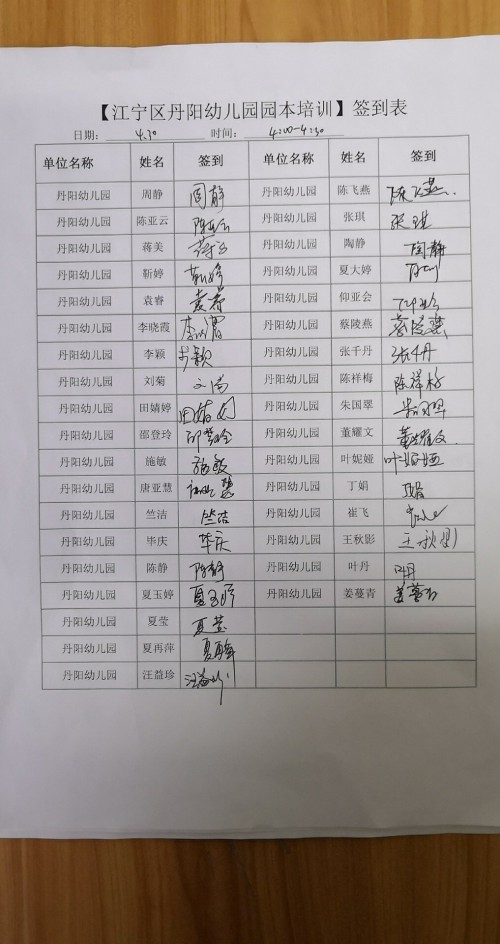 【江宁区丹阳幼儿园园本培训】签到表
日期： 4.30 时间： 4:00-4:30
单位名称 姓名 签到 单位名称 姓名 签到
丹阳幼儿园 周静 周静 丹阳幼儿园 陈飞燕 陈飞燕
丹阳幼儿园 陈亚云 陈亚云 丹阳幼儿园 张琪 张琪
丹阳幼儿园 蒋美 丹阳幼儿园 陶静 陶静
丹阳幼儿园 靳婷 靳婷 丹阳幼儿园 夏大婷
丹阳幼儿园 袁睿 袁睿 丹阳幼儿园 仰亚会
丹阳幼儿园 李晓霞 李晓霞 丹阳幼儿园 蔡陵燕 蔡陵燕
丹阳幼儿园 李颖 李颖 丹阳幼儿园 张千丹 张千丹
丹阳幼儿园 刘菊 丹阳幼儿园 陈祥梅 陈祥梅
丹阳幼儿园 田婧婷 田婧婷 丹阳幼儿园 朱国翠 朱国翠
丹阳幼儿园 邵登玲 邵登玲 丹阳幼儿园 董耀文 董耀文
丹阳幼儿园 施敏 施敏 丹阳幼儿园 叶妮娅 叶妮娅
丹阳幼儿园 唐亚慧 丹阳幼儿园 丁娟 丁娟
丹阳幼儿园 竺洁 竺洁 丹阳幼儿园 崔飞
丹阳幼儿园 毕庆 毕庆 丹阳幼儿园 王秋影 王秋影
丹阳幼儿园 陈静 陈静 丹阳幼儿园 叶丹 叶丹
丹阳幼儿园 夏玉婷 夏玉婷 丹阳幼儿园 姜蔓青 姜蔓青
丹阳幼儿园 夏莹 夏莹
丹阳幼儿园 夏再萍 夏再萍
丹阳幼儿园 汪益珍 汪益珍